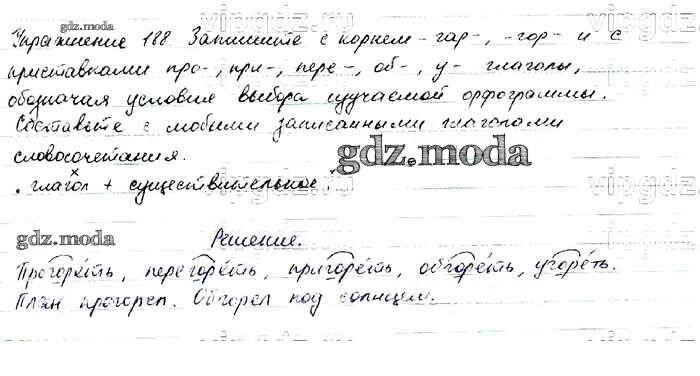 gdz.moda
vipgdz.ru
Упражнение 188. Запишите с корнем -гар-, -гор- и с
приставками про-, при-, пере-, об-, у- глаголы,
обозначая условия выбора изучаемой орфограммы.
Составьте с любыми записанными глаголами
словосочетания.
gdz.moda
глагол + существительное.
gdz.moda
Решение.
Прогореть, перегореть, пригореть, обгореть, угореть.
План прогорел. Обгорел под солнцем.